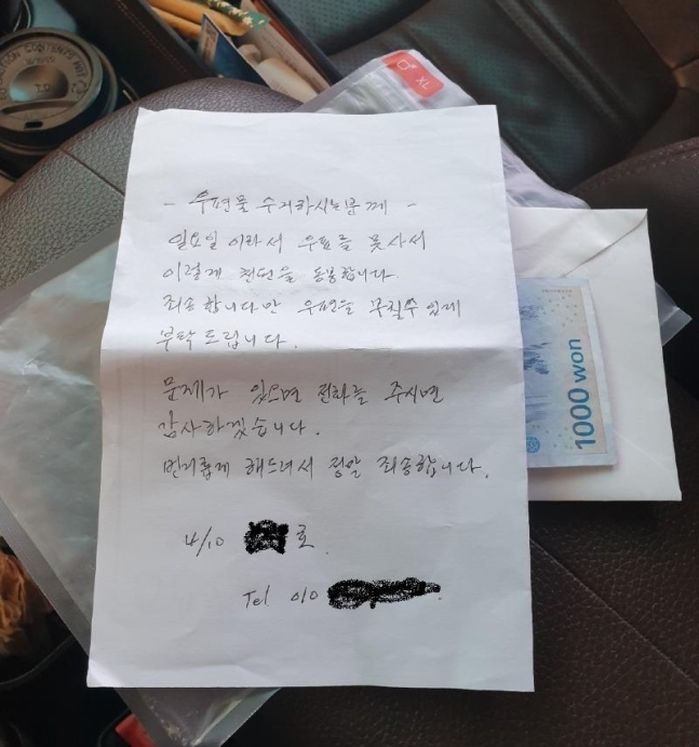 CAUTION CONTENTS HOT
XL
- 우편물 수거하시는분께 -
일요일이라서 우표를 못사서
이렇게 천원을 동봉합니다.
죄송합니다만 우편을 부칠수 있게
부탁드립니다.
문제가 있으면 전화를 주시면
감사하겠습니다.
번거롭게 해드려서 정말 죄송합니다.
4/10 호.
Tel 010
1000 won